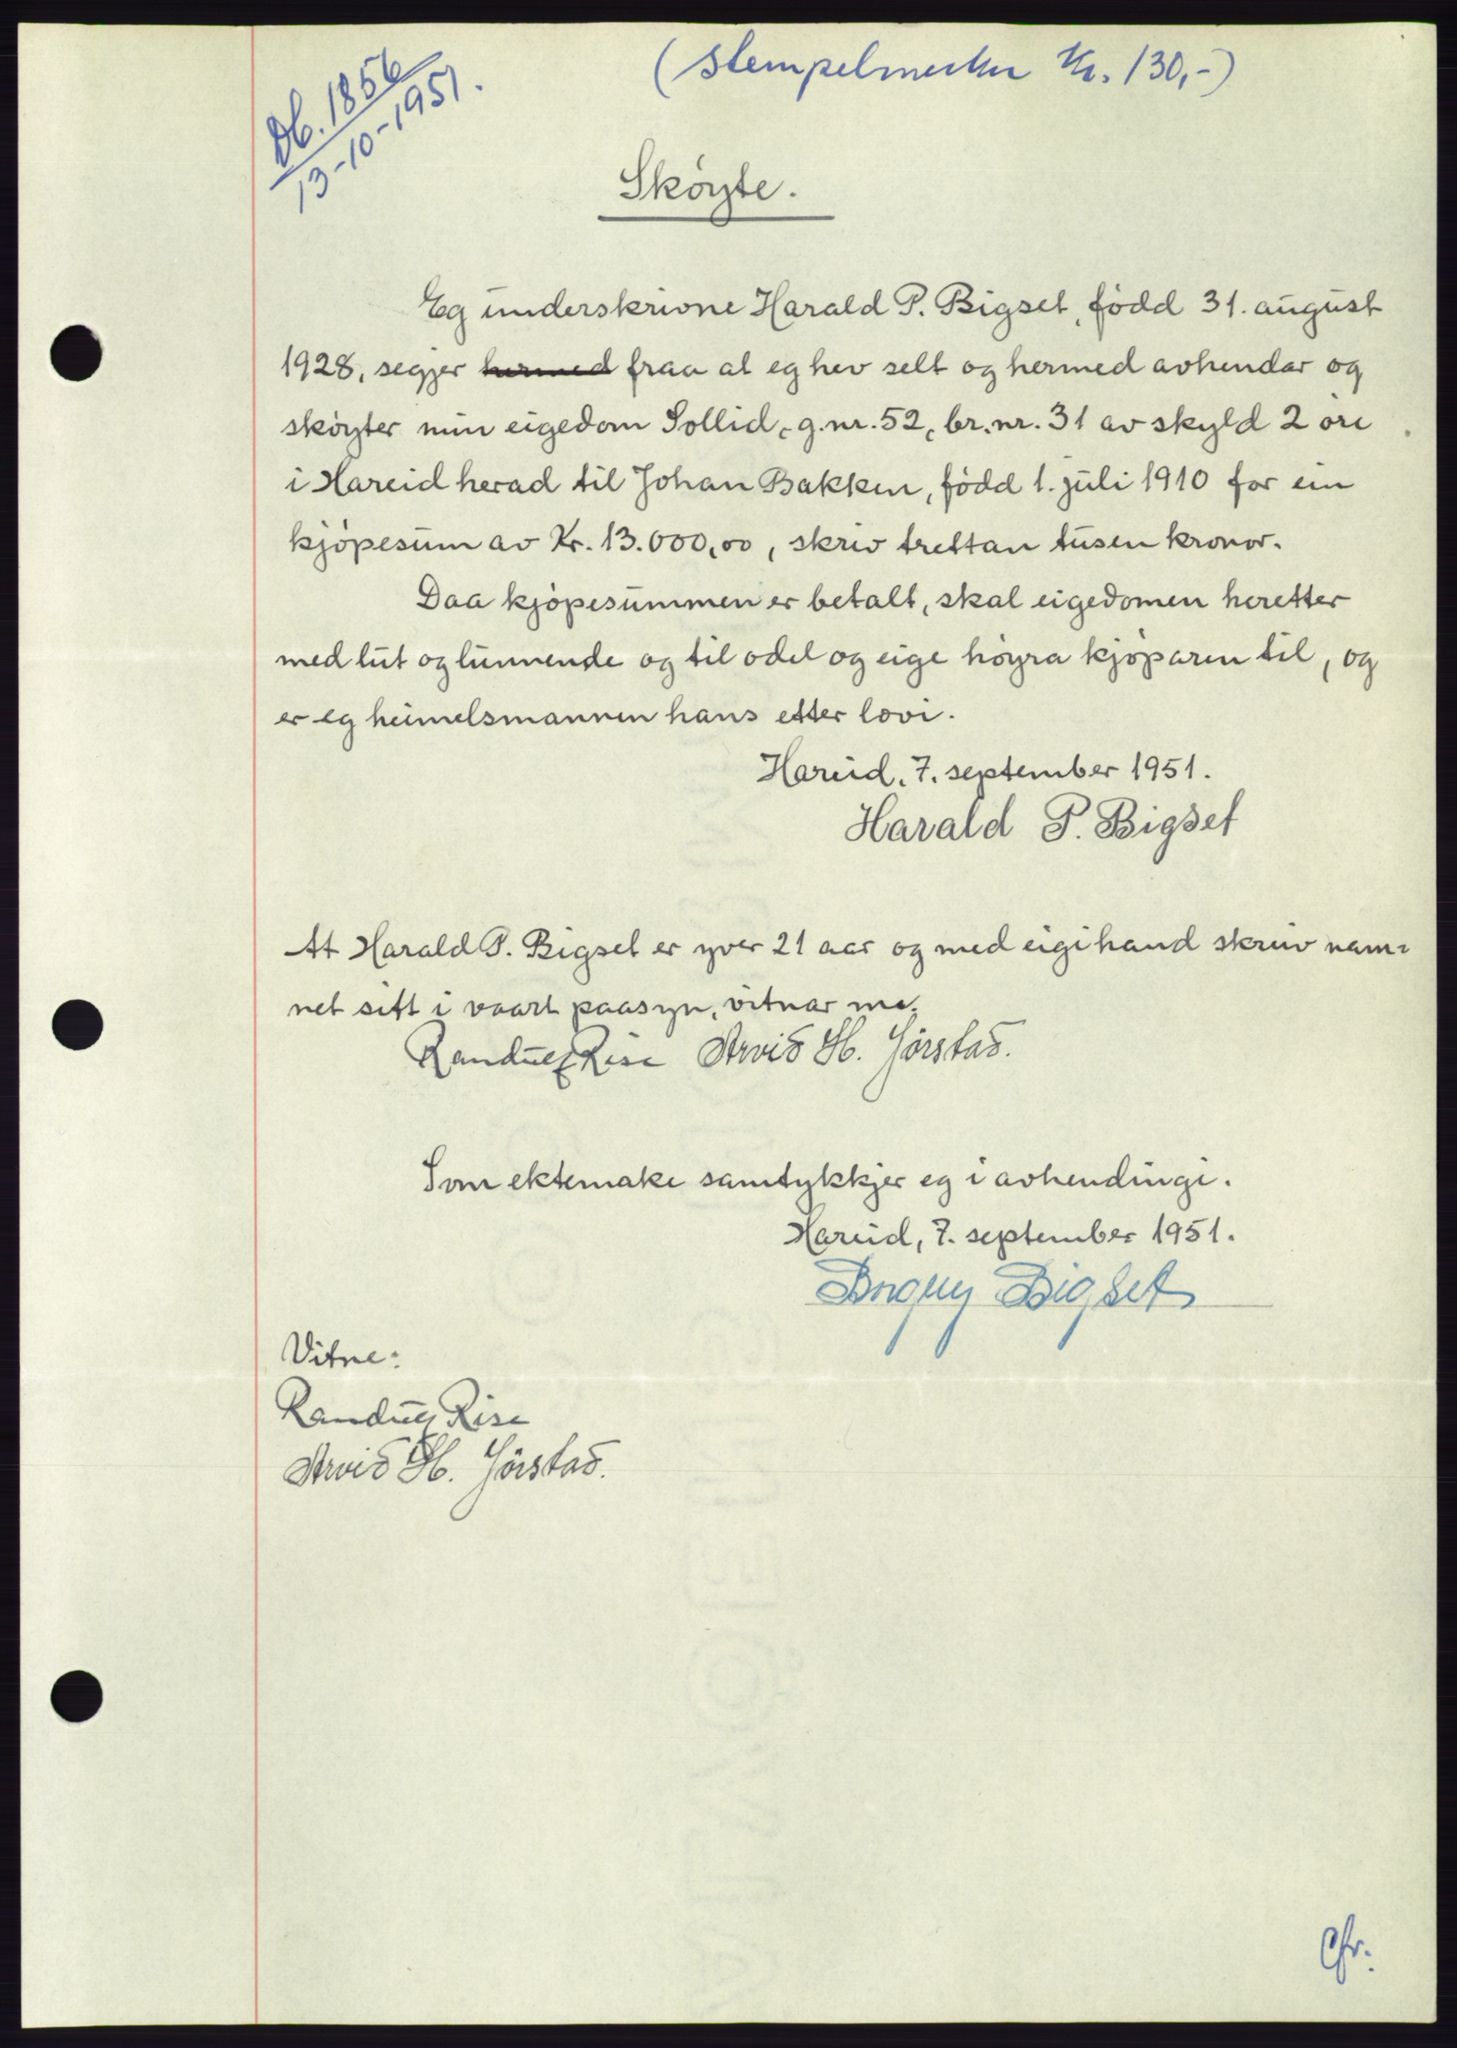 Db. 1856
13-10-1951.
(Stempelmerker Kr. 130,-)
Skøyte.
Eg underskrivne Harald P. Bigset, fødd 31. august
1928, segjer hermed fraa at eg hev selt og hermed avhendar og
skøyter min eigedom Sollid, g.nr. 52, br.nr. 31 av skyld 2 øre
i Hareid herad til Johan Bakken, fødd 1. juli 1910 for ein
kjøpesum av Kr. 13.000,00, skriv trettan tusen kronor.
Daa kjøpesummen er betalt, skal eigedomen heretter
med lut og lunnende og til odel og eige høyra kjøparen til, og
er eg heimelsmannen hans etter lovi.
Hareid, 7. september 1951.
Harald P. Bigset
At Harald P. Bigset er yver 21 aar og med eigi hand skreiv nam=
net sitt i vaart paasyn, vitnar me.
Randulf Rise Arvid H. Gjørstad.
Som ektemake samtykkjer eg i avhendingi.
Hareid, 7. september 1951.
Bigset
Vitne:
Randulf Rise
Arvid H. Gjørstad.